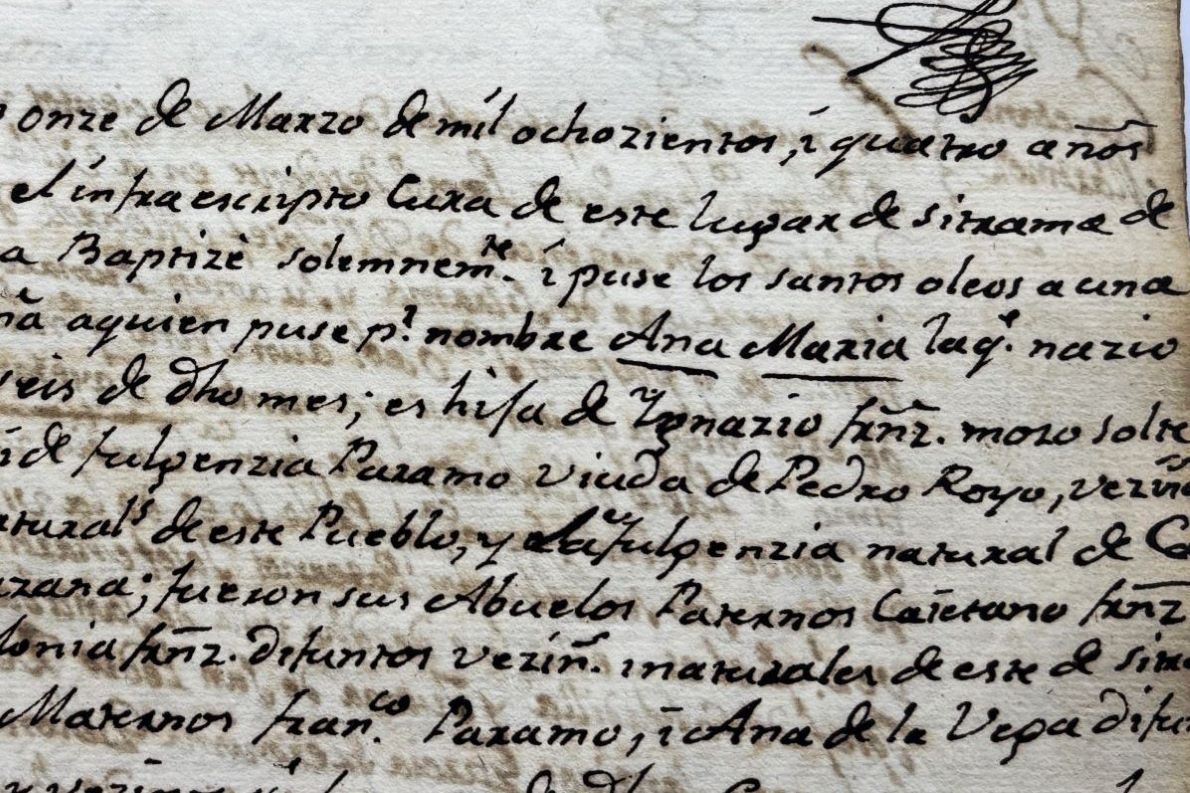 onze de Marzo de mil ochozientos, i quatro años
el infraescripto Cura de este lugar de sitrama de
a Baptizè solemnemte. i puse los santos oleos a una
ña aquien puse pr. nombre Ana Maria laqe. nazio
seis de dho mes; es hija de Ygnazio frñz. mozo solte
i de fulgenzia Paramo viuda de Pedro Royo, vezin
turals de este Pueblo, y la fulgenzia natural de Ca
zana; fueron sus Abuelos Paternos Caietano frñz
lonia frñz. difuntos vezinˢ. i naturales de este de sitra
Maternos franco. Paramo, i Ana de la Vega difun